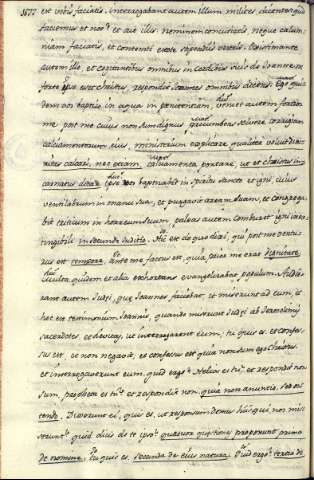 et vobis faciatis. Interrogabant autem illum milites dicentes quid
faciemus et nos? et ait illis neminem concutiatis, neque calum-
niam faciatis, et contenti estote stipendiis vestris. Existimante
autem illo, et cogitantibus omnibus in cordibus suis de Ioanne ne
forte ipse esset Christus, respondit Ioannes omnibus dicens Ego qui-
dem vos baptizo in aqua in penitentiam veniet autem fortior
me post me cuius non sum dignus procumbens solvere corrigiam
calceamentorum eius, ministerium explicare
calceamenta portare, ut et Christus in-
carnatus ipse vos baptizabit in spiritu sancto et igni, cuius
ventilabrum in manu sua, et purgavit aream suam, et congrega-
bit triticum in horreum suum paleas autem comburet igni inex-
tinguibili in secundo iudicio. Hic est de quo dixi, qui post me ventu-
rus est tempore, ante me factus est, quia prior me erat
Multa quidem et alia exhortans evangelizabat populum.
rant autem Iudei, que Ioannes faciebat, et miserunt ad eum,
hoc est testimonium Ioannis, quando miserunt Iudei ab Ierosolimis
sacerdotes, et levitas, ut interrogarent eum, tu quis es, et confes-
sus est et non negavit, et confessus est quia non sum ego Christus.
et interrogaverunt eum, quid ergo? Helias es tu? et respondit non
sum, propheta es tu? et respondit non, quia non
Dixerunt ei, quis es, ut responsum demus his qui nos mise-
runt? quid dicis de te ipso? quatuor proponunt primo
de nomine. tu quis es. secunda de eius natura. Quid ergo? tertia de